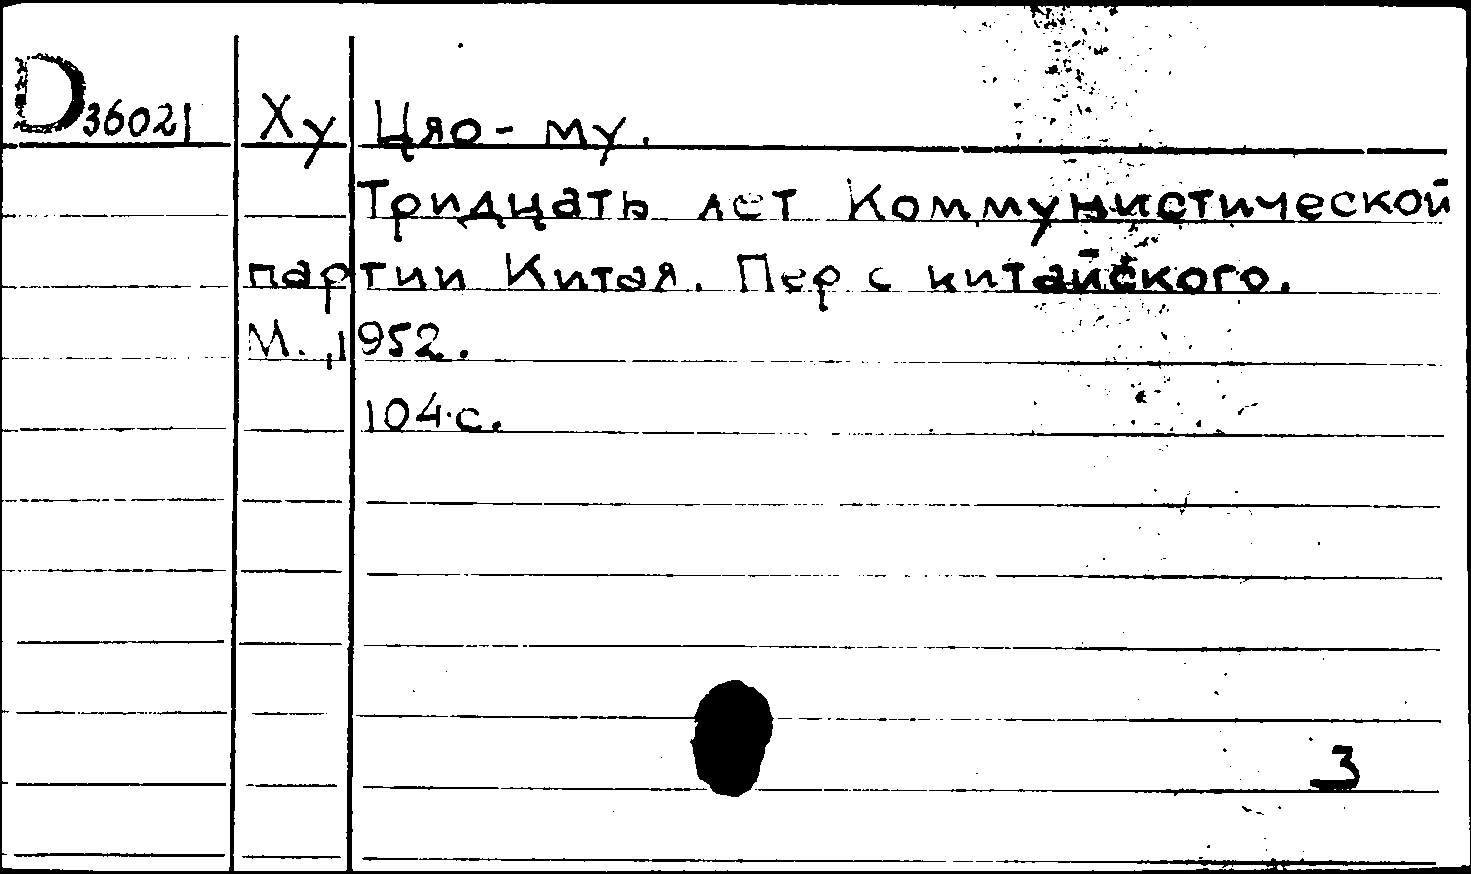 D36021 Ху Цяо-му.
Тридцать лет Коммунистической
партии Китая. Пер с китайского.
М., 1952.
104 с.
3